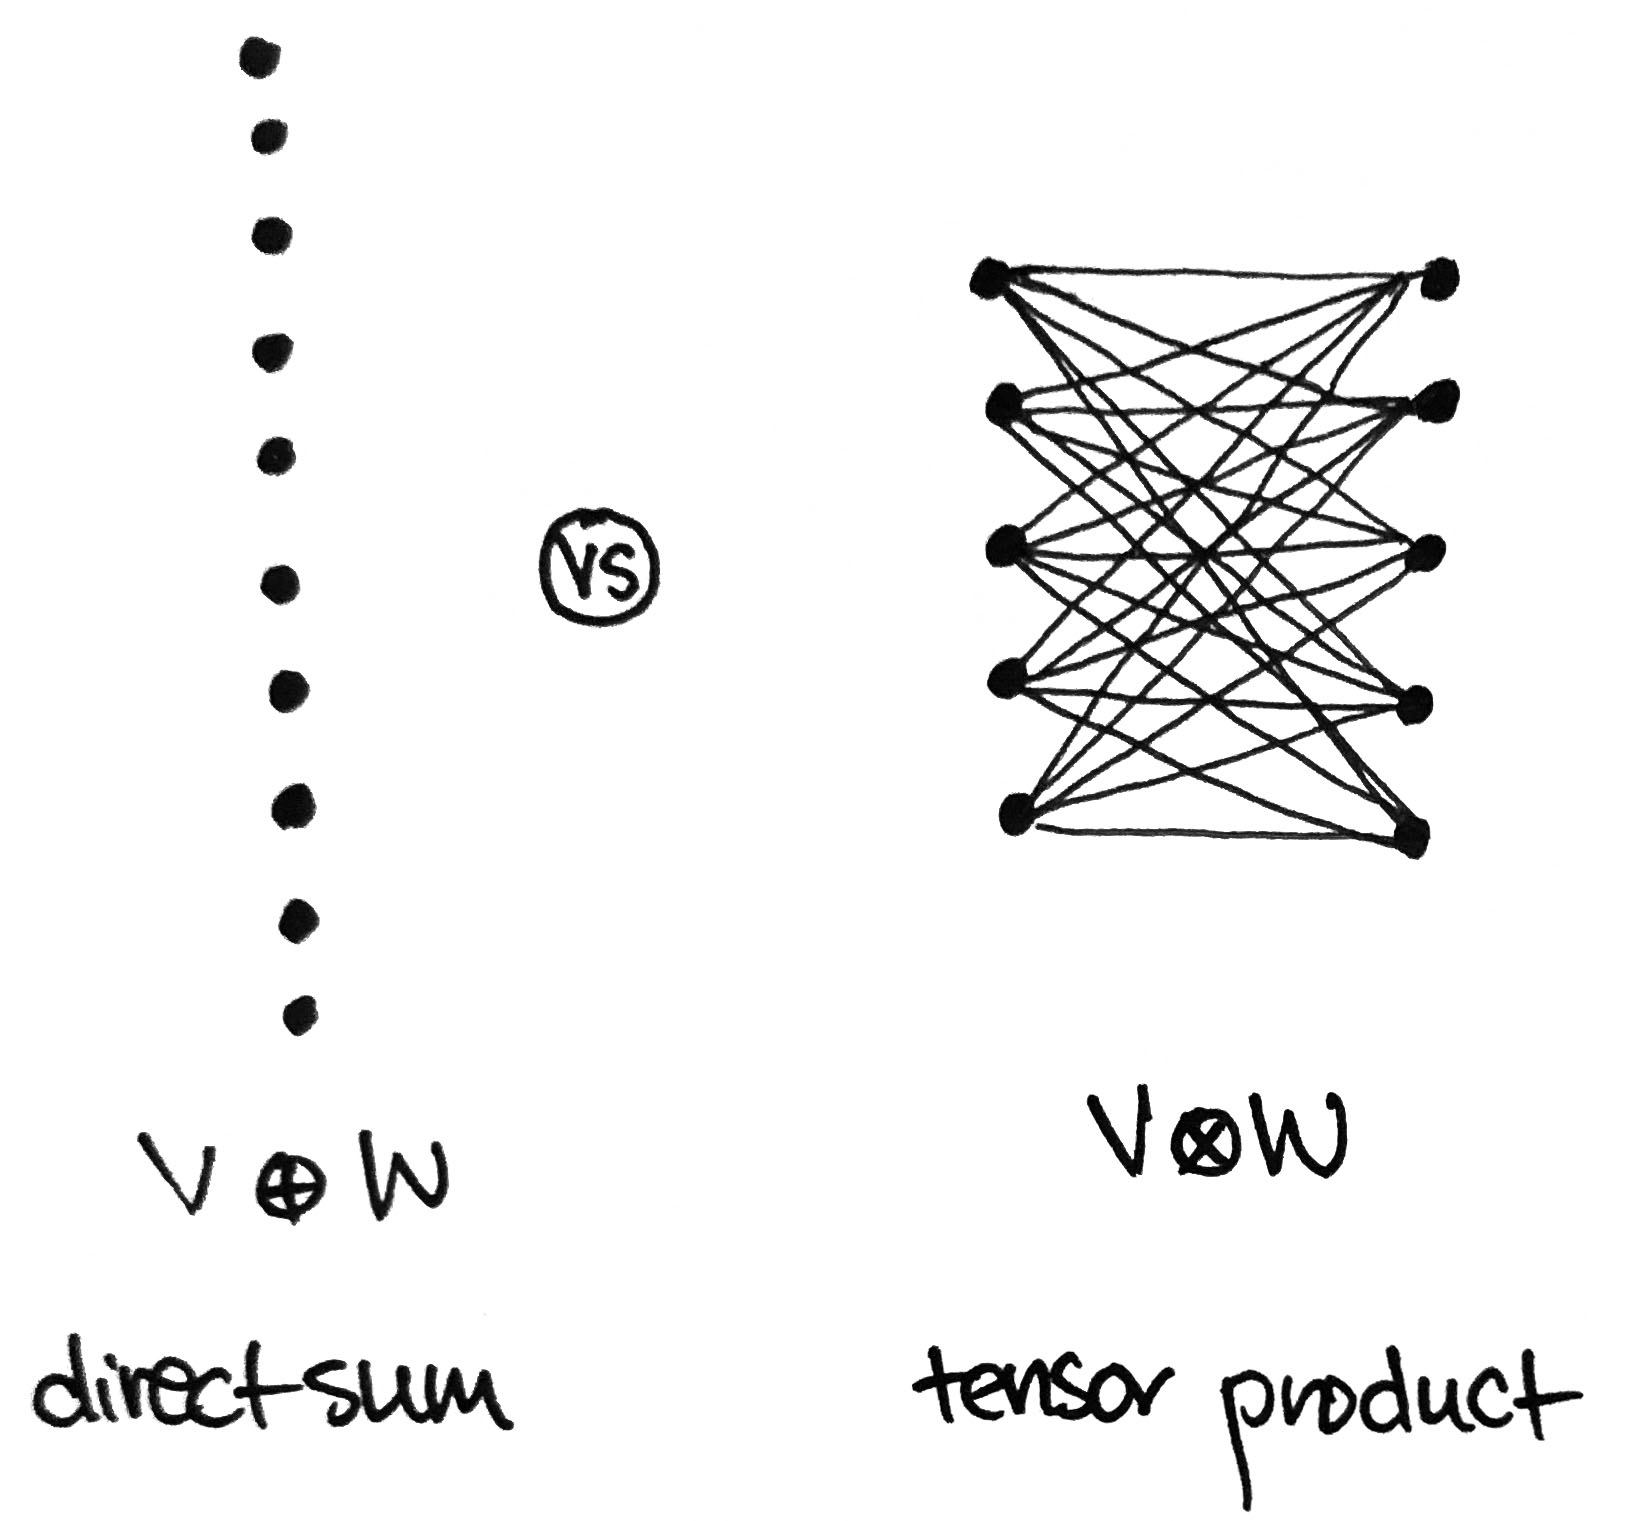 VS
V ⊕ W
V ⊗ W
direct sum
tensor product